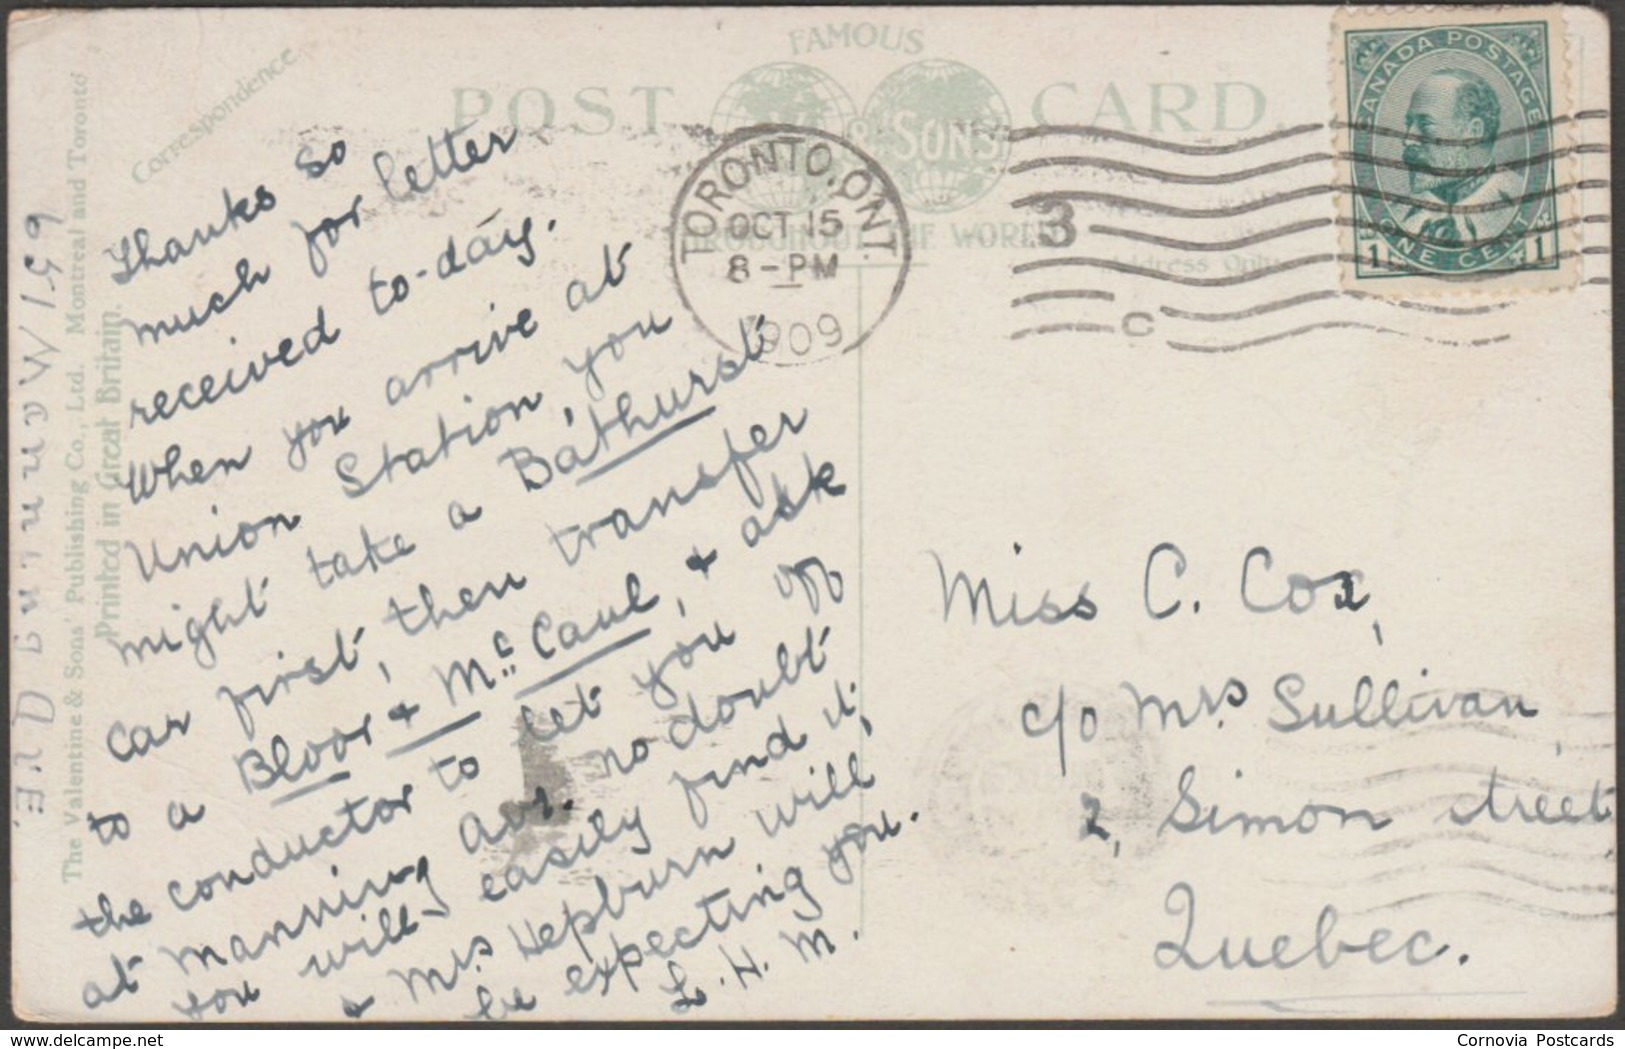 FAMOUS
POST CARD
& SONS
THROUGHOUT THE WORLD
Correspondence
Address Only
The Valentine & Sons' Publishing Co., Ltd. Montreal and Toronto
Printed in Great Britain.
TORONTO, ONT.
OCT 15
8 - PM
1909
3
C
CANADA POSTAGE
1 ONE CENT 1
Thanks so
much for letter
received to-day.
When you arrive at
Union Station, you
might take a Bathurst
car first, then transfer
to a Bloor & McCaul, & ask
the conductor to let you off
at Manning Ave. no doubt
you will easily find it,
& Mrs. Hepburn will
be expecting you.
L. H. M.
659 Manning
Miss C. Cox,
c/o Mrs Sullivan,
2, Simon street
Quebec.
Cornovia Postcards